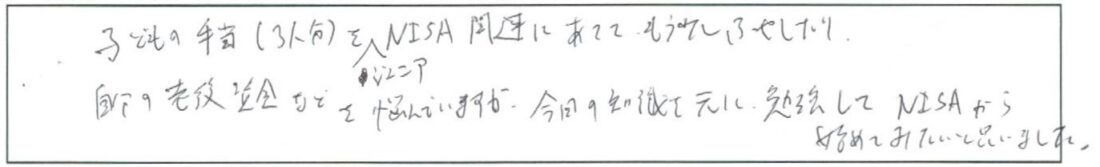 子どもの手当(3人分)をジュニアNISA関連にあてて、もう少しふやしたり、
自分の老後資金などを悩んでいますが、今回の知識を元に、勉強してNISAから
始めてみたいと思いました。